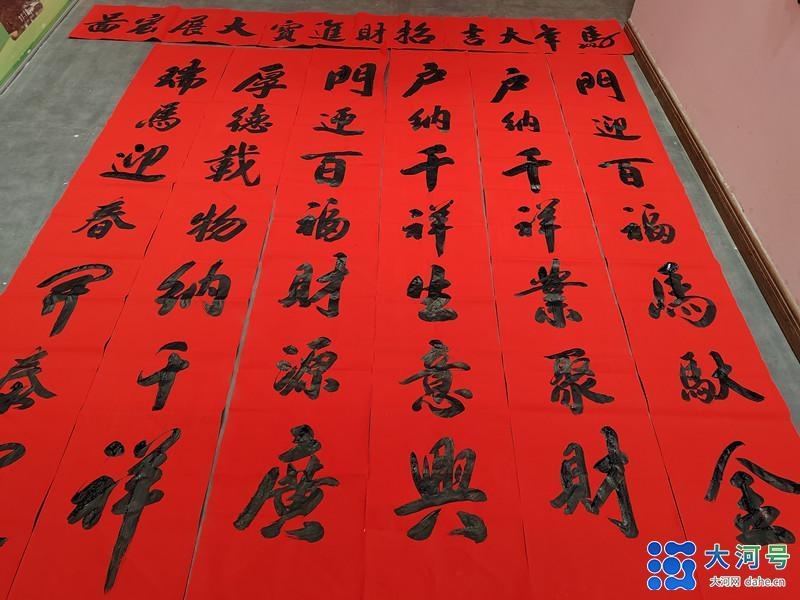 馬年大吉
招財進寶
大展宏啚
門迎百福馬馱金
戶納千祥業聚財
戶納千祥生意興
門迎百福財源廣
厚德載物納千祥
瑞馬迎春
大河号
大河网 dahe.cn